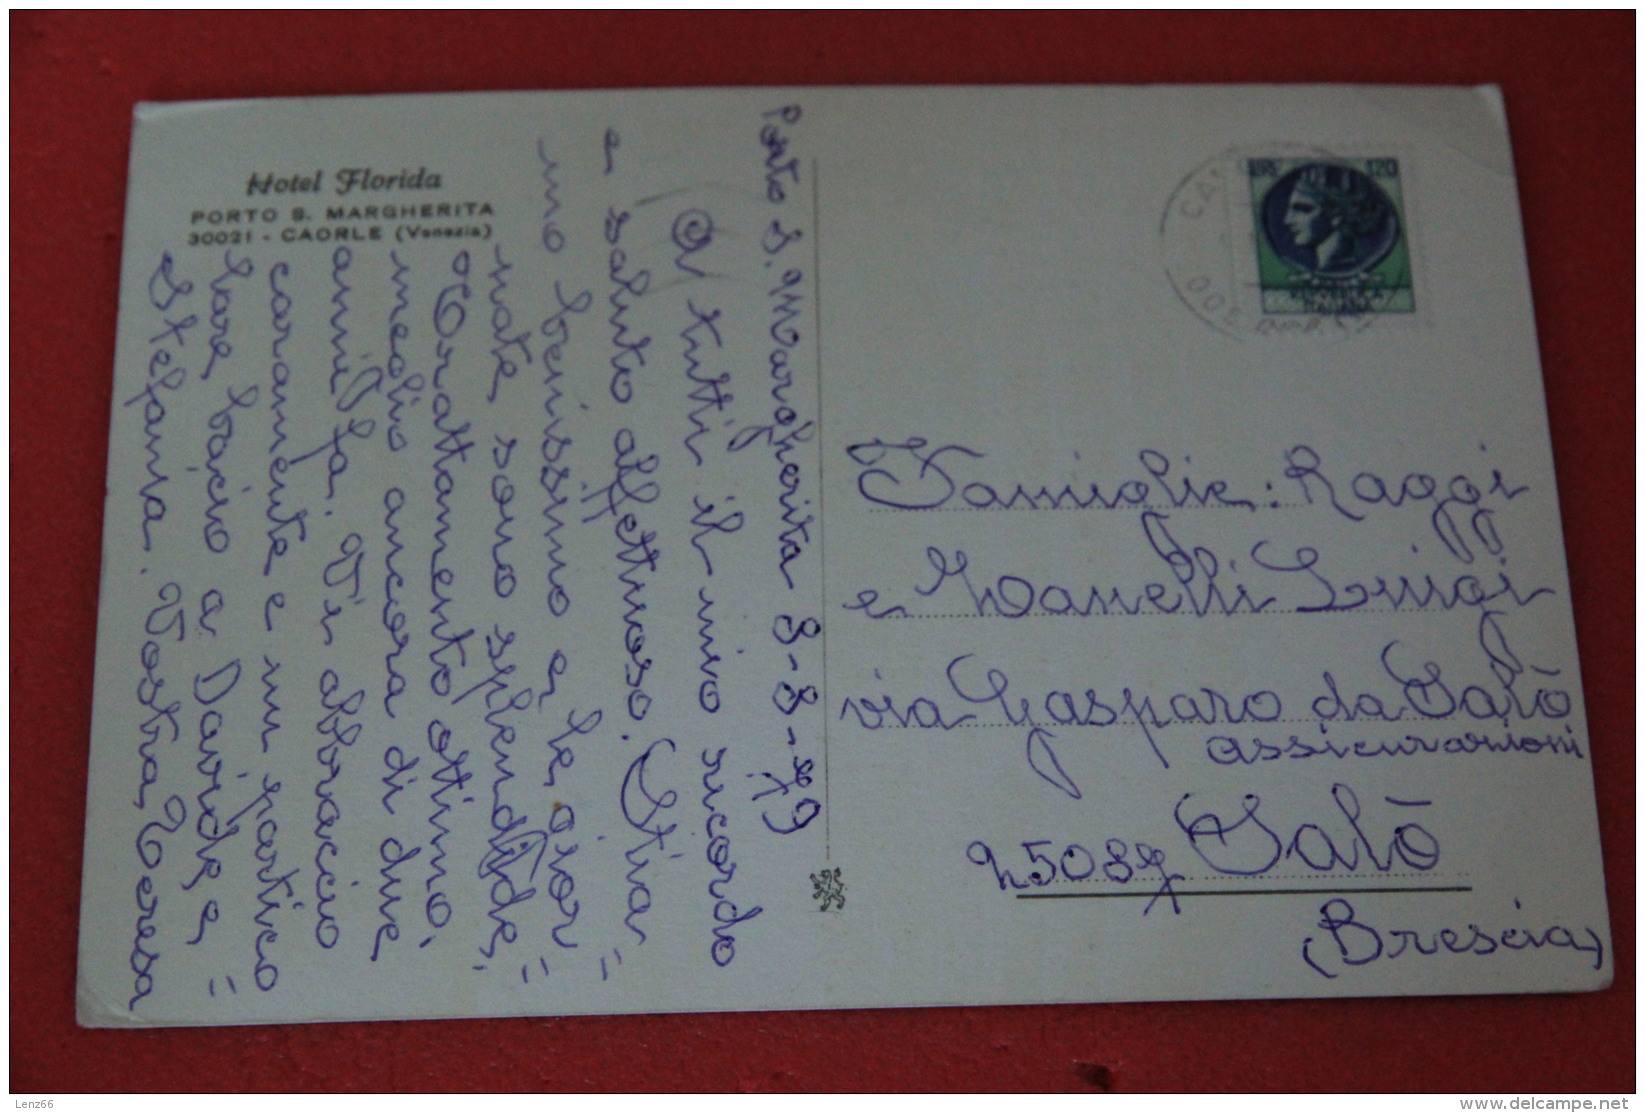 Hotel Florida
PORTO S. MARGHERITA
30021 - CAORLE (Venezia)
Porto S. Margherita 8-8-79
A tutti il mio ricordo
e saluto affettuoso. Stia=
mo benissimo e le gior=
nate sono splendide,
Trattamento ottimo,
meglio ancora di due
anni fa. Vi abbraccio
caramente e un partico
lare bacio a Davide e=
Stefania. Vostra Teresa
LIRE 120
Famiglie: Raggi
e Zanelli Luigi
via Gasparo da Salò
assicurazioni
25087 Salò
(Brescia)
Lenz66
www.delcampe.net